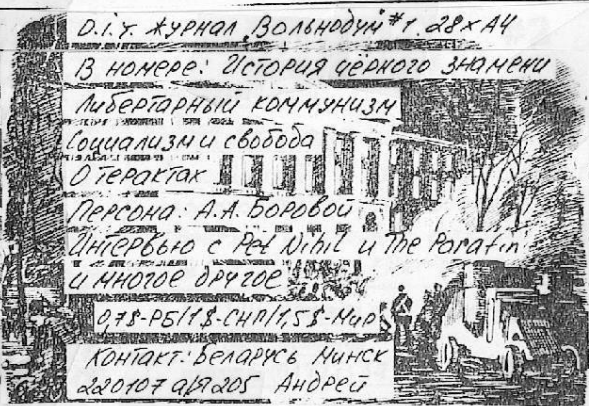 D.i.Y. журнал „Вольнодум" #1. 28 x A4
В номере: История чёрного знамени
Либертарный коммунизм
Социализм и свобода
О терактах
Персона: А.А. Боровой
Интервью с Pet Nihil и The Parafin
и многое другое
0,7$-РБ/1$-СНГ/1,5$-Мир
Контакт: Беларусь Минск
220107 а/я 205 Андрей